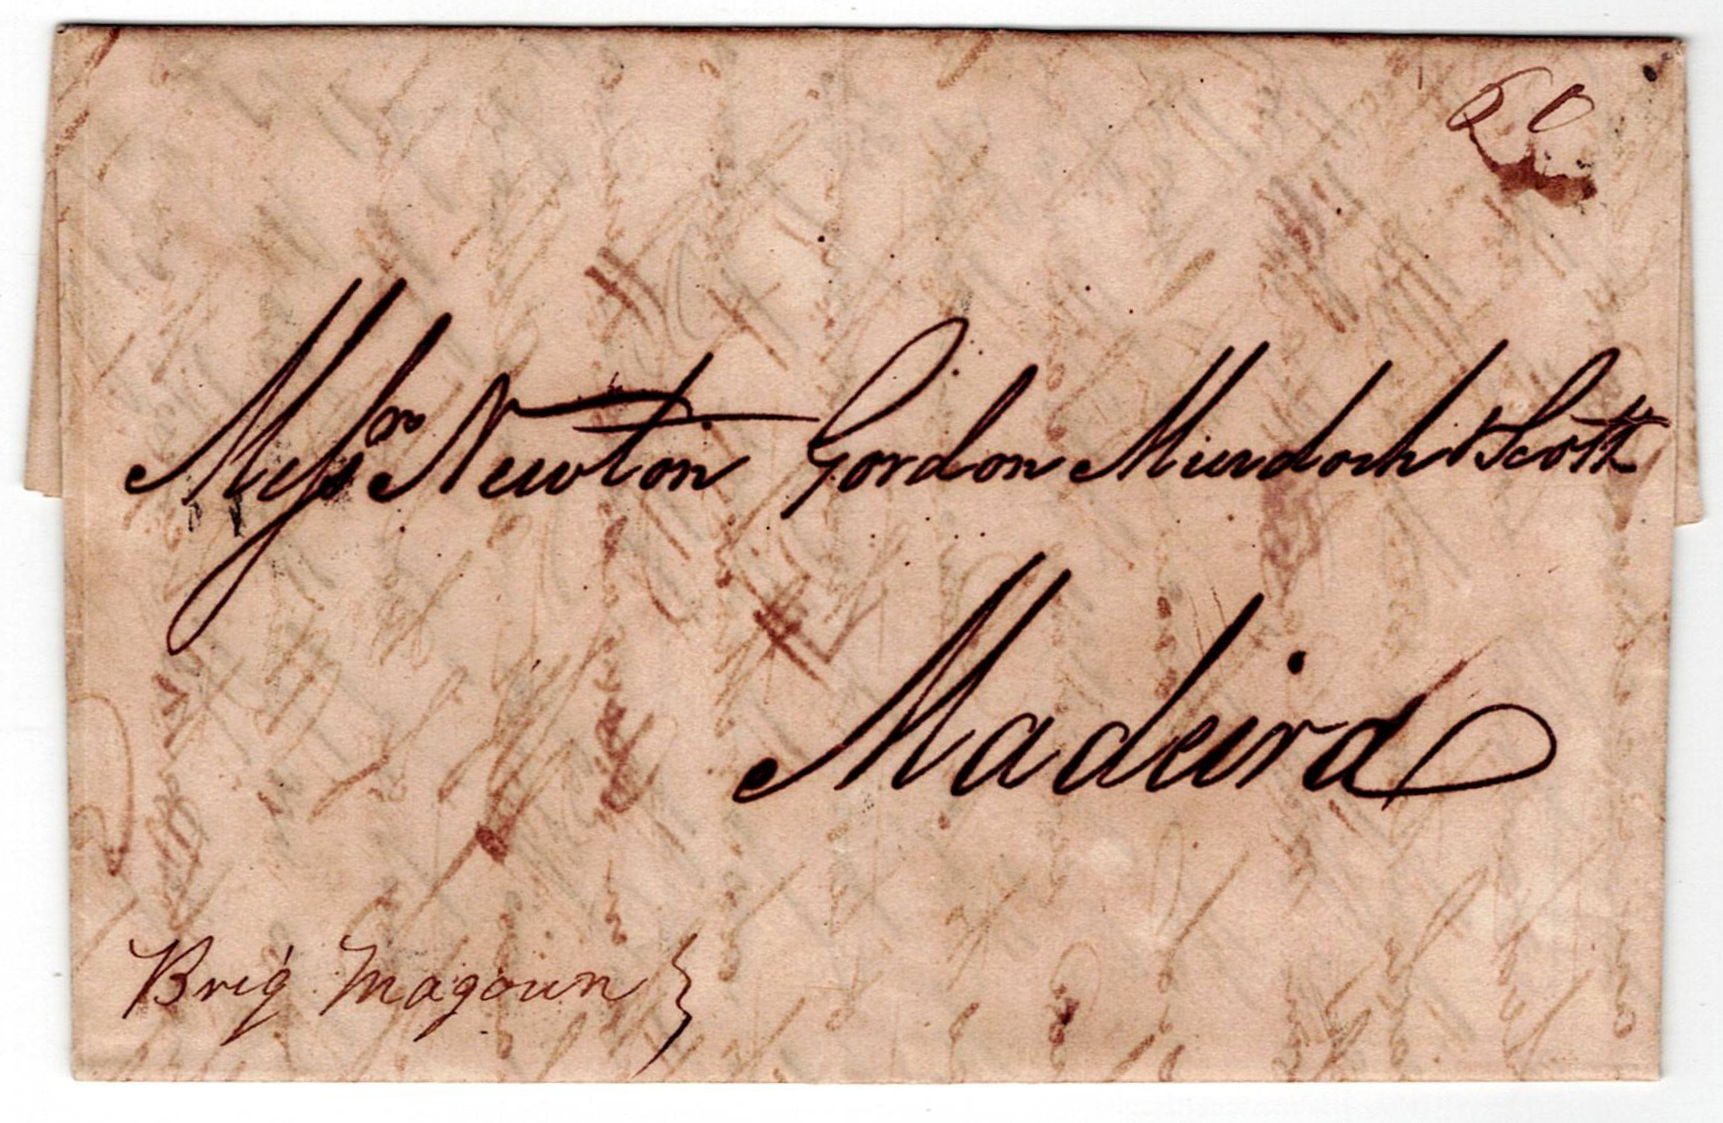 60
Messrs Newton Gordon Murdoch & Scott
Madeira
Brig Magoun